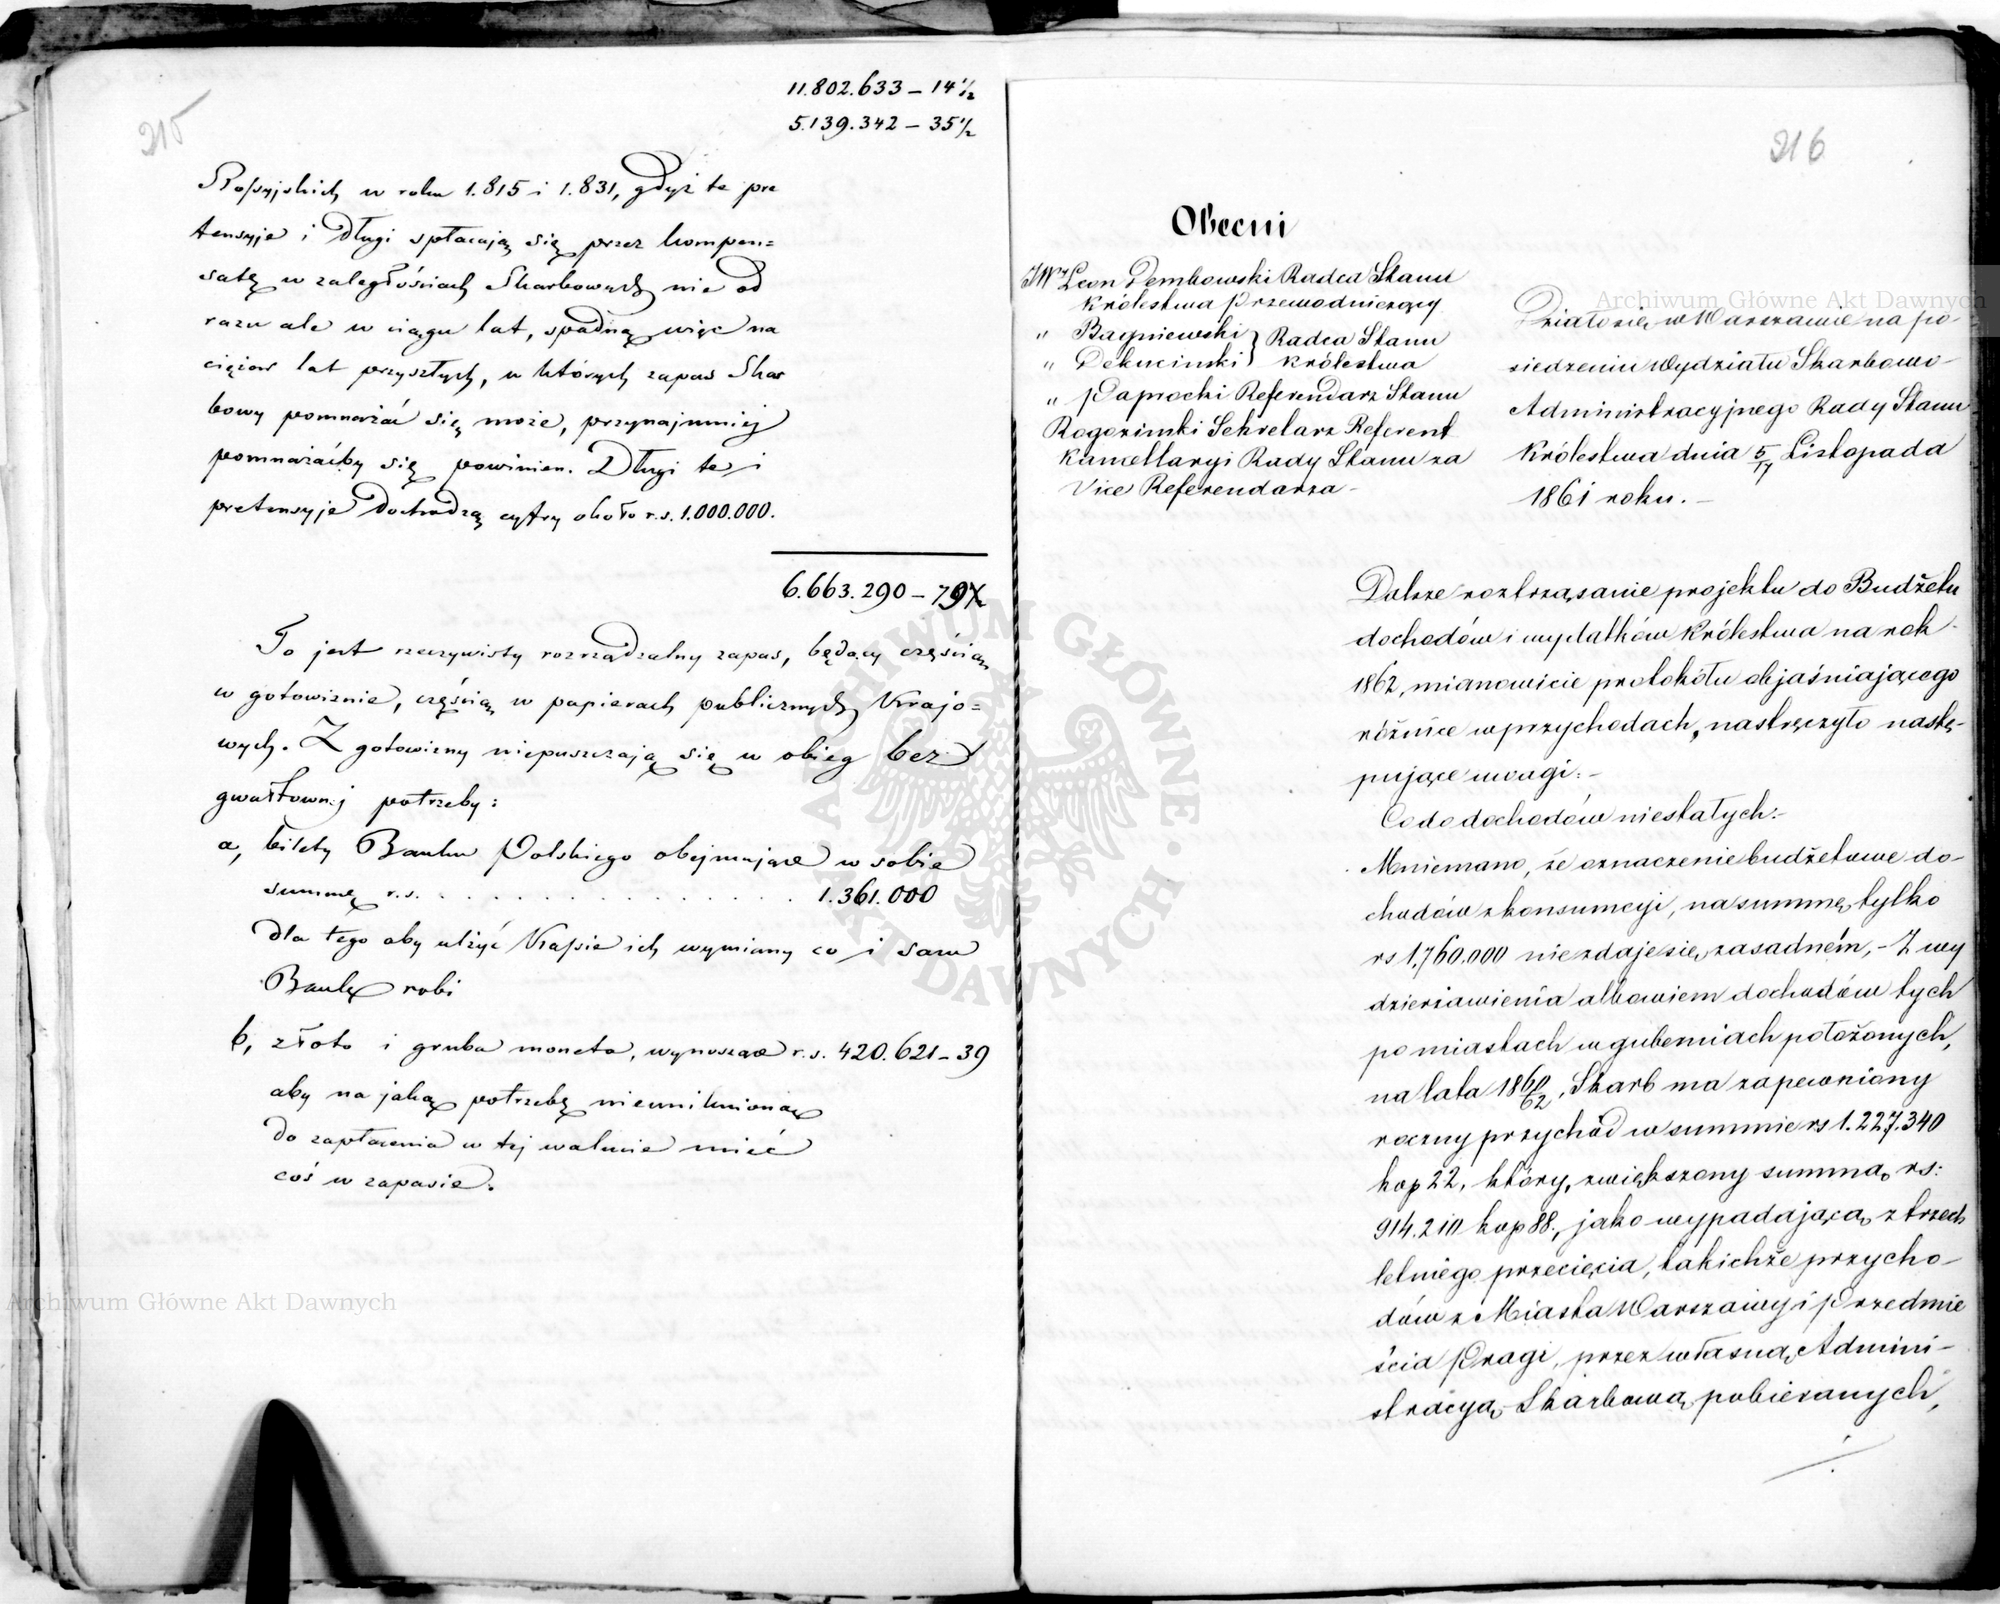 215
11.802.633 – 14 1/2
5.139.342 – 35 1/2
Rossyjskich w roku 1.815 i 1.831, gdyż te pre
tensyje i długi spłacają się przez kompen=
satę w zaległościach Skarbowych nie od
razu ale w ciągu lat, spadną więc na
ciężar lat przyszłych, w których zapas Skar
bowy pomnażać się może, przynajmniej
pomnażaćby się powinien. Długi te i
pretensyje dochodzą cyfry około r.s. 1.000.000.
6.663.290 – 79
To jest rzeczywisty rozrządzalny zapas, będący częścią
w gotowiznie, częścią w papierach publicznych Krajo=
wych. Z gotowizny niepuszczają się w obieg bez
gwałtownej potrzeby:
a, bilety Banku Polskiego obejmujące w sobie
summę r.s. . . . . . . . . . . . . . . 1.361.000
dla tego aby ulżyć Kassie ich wymiany co i sam
Bank robi
b, złoto i gruba moneta, wynoszące r.s. 420.621 – 39
aby na jaką potrzebę nieuniknioną
do zapłacenia w tej walucie mieć
coś w zapasie.
216
Obecni
JW Leon Dembowski Radca Stanu
Królestwa Przewodniczący
" Bagniewski } Radca Stanu
" Dekuciński } Królestwa
" Paprocki Referendarz Stanu
Rogoziński Sekretarz Referent
Kancellaryi Rady Stanu za
Vice Referendarza –
Działo się w Warszawie na po-
siedzeniu Wydziału Skarbowo-
Administracyjnego Rady Stanu
Królestwa dnia 5/17 Listopada
1861 roku. –
Dalsze roztrząsanie projektu do Budżetu
dochodów i wydatków Królestwa na rok
1862, mianowicie protokółu objaśniającego
różnice w przychodach, nastręczyło nastę-
pujące uwagi: –
Co do dochodów niestałych: –
Mniemano, że oznaczenie budżetowe do-
chodów z konsumcyi, na summę tylko
rs 1,760.000 nie zdaje się zasadném, – Z wy
dzierżawienia albowiem dochodów tych
po miastach w guberniach położonych,
na lata 1860/62, Skarb ma zapewniony
roczny przychód w summie rs 1.227.340
kop 22, który, zwiększony summą rs:
914.210 kop 88, jako wypadającą z trzech
letniego przecięcia, takichże przycho-
dów z Miasta Warszawy i Przedmie
ścia Pragi, przez własną Admini-
stracyą Skarbową pobieranych,
Archiwum Główne Akt Dawnych
Archiwum Główne Akt Dawnych
ARCHIWUM GŁÓWNE AKT DAWNYCH